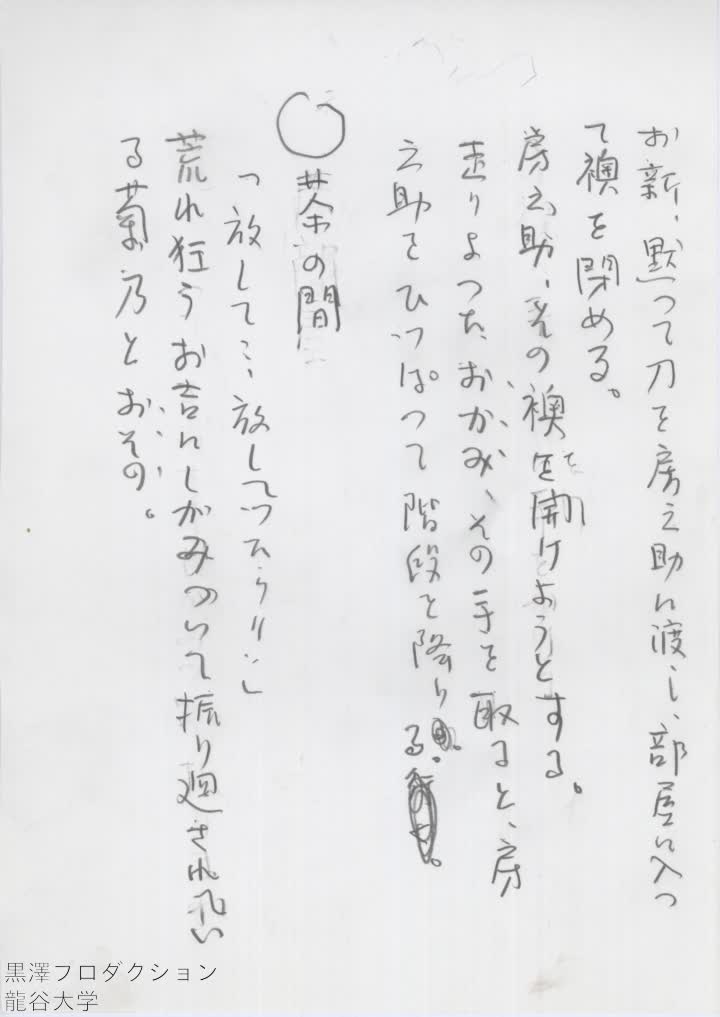 お新、黙って刀を房之助に渡し、部屋に入っ
て襖を閉める。
房之助、その襖を開けようとする。
走りよったおかみ、その手を取ると、房
之助をひっぱって階段を降りる。
○ 茶の間
「放して…、放してったらり…」
荒れ狂うお吉にしがみついて振り廻されてい
る菊乃とおその。
黒澤プロダクション
龍谷大学